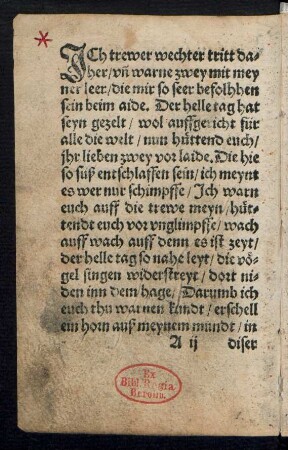 ICh trewer wechter tritt da⸗
her/ vñ warne zwey mit mey
ner leer/ die mir so seer befolhhen
sein beim aide. Der helle tag hat
seyn gezelt/ wol auffgericht für
alle die welt/ nun hüttend euch/
jhr lieben zwey vor laide. Die hie
so süß entschlaffen sein/ ich meynt
es wer nur schimpffe/ Ich warn
euch auff die trewe meyn/ hüt⸗
tendt euch vor vnglimpffe/ wach
auff wach auff denn es ist zeyt/
der helle tag so nahe leyt/ die vö⸗
gel singen widerstreyt/ dort ni⸗
den inn dem hage/ Darumb ich
euch thu warnen kundt/ erschell
ein horn auß meynem mundt/ in
A ij diser
Ex
Bibl. Regia
Berolin.